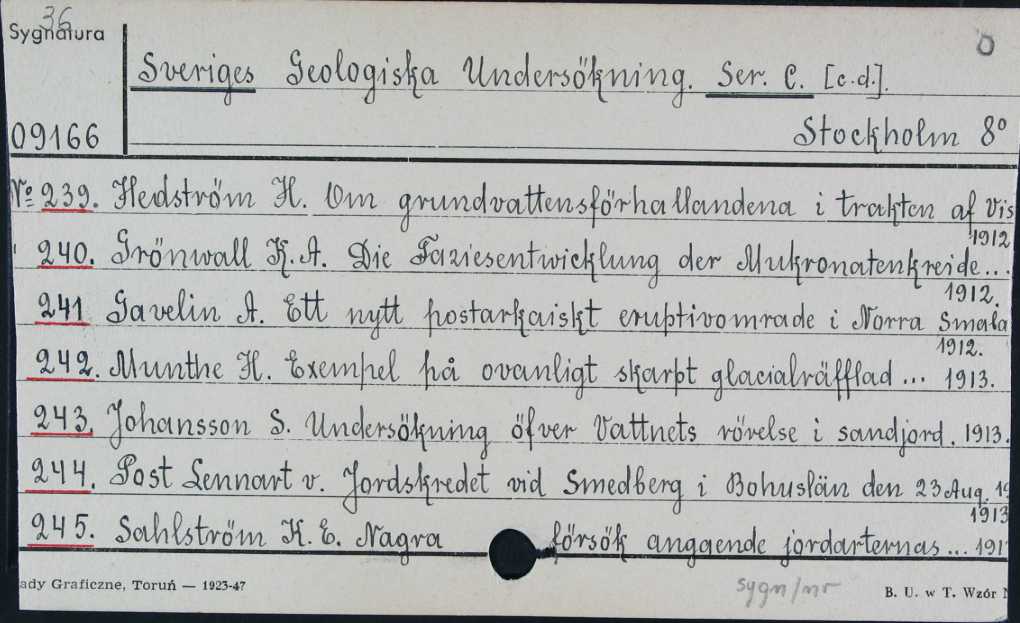 36
Sygnatura
0
Sveriges Geologiska Undersökning. Ser. C. [c.d.].
09166
Stockholm 8º
Nº 239. Hedström H. Om grundvattensförhallandena i trakten af Vis
1912
240. Grönwall K.A. Die Faziesentwicklung der Mukronatenkreide...
1912.
241 Gavelin A. Ett nytt postarkaiskt eruptivomrade i Norra Smala
1912.
242. Munthe H. Exempel på ovanligt skarpt glacialräfflad ... 1913.
243. Johansson S. Undersökning öfver Vattnets rörelse i sandjord. 1913.
244. Post Lennart v. Jordskredet vid Smedberg i Bohuslän den 23 Aug. 19
1913
245. Sahlström K. E. Nagra försök angaende jordarternas ... 191
ady Graficzne, Toruń — 1923-47
sygn/nr
B. U. w T. Wzór N